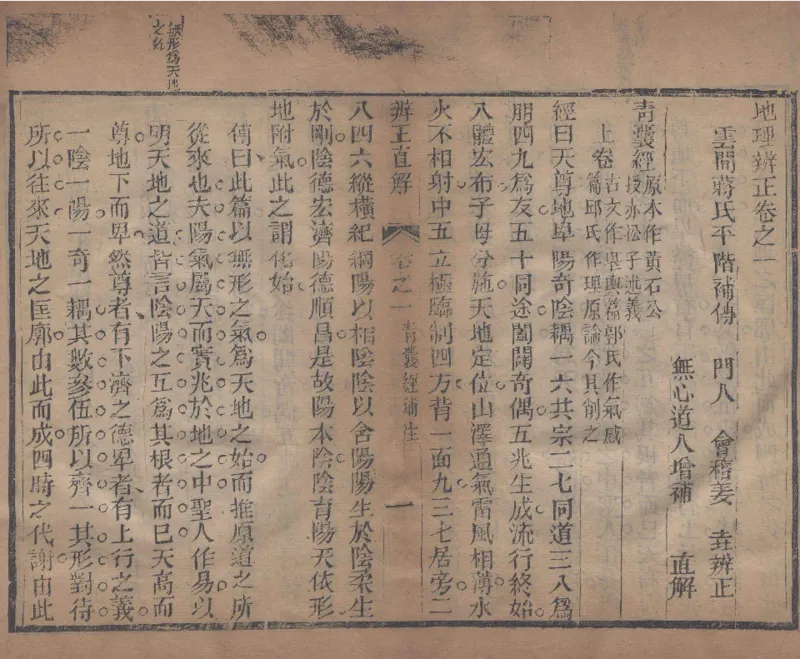 地理辨正卷之一
雲間蔣氏平階補傳 門人 會稽姜 垚辨正
無心道人增補 直解
青囊經 原本作黃石公
授赤松子述義
上卷 古文作堪輿篇郭氏作氣感
篇邱氏作理原論今具削之
經曰天尊地卑陽奇陰耦一六共宗二七同道三八爲
朋四九爲友五十同途闔闢奇偶五兆生成流行終始
八體宏布子母分施天地定位山澤通氣雷風相薄水
火不相射中五立極臨制四方背一面九三七居旁二
辨正直解 卷之一 青囊經補註 一
八四六縱橫紀綱陽以相陰陰以含陽陽生於陰柔生
於剛陰德宏濟陽德順昌是故陽本陰陰育陽天依形
地附氣此之謂化始
傳曰此篇以無形之氣爲天地之始而推原道之所
從來也夫陽氣屬天而實兆於地之中聖人作易以
明天地之道皆言陰陽之互爲其根者而已天高而
尊地下而卑然尊者有下濟之德卑者有上行之義
一陰一陽一奇一耦其數參伍所以齊一其形對待
所以往來天地之匡廓由此而成四時之代謝由此
無形爲天地
之始